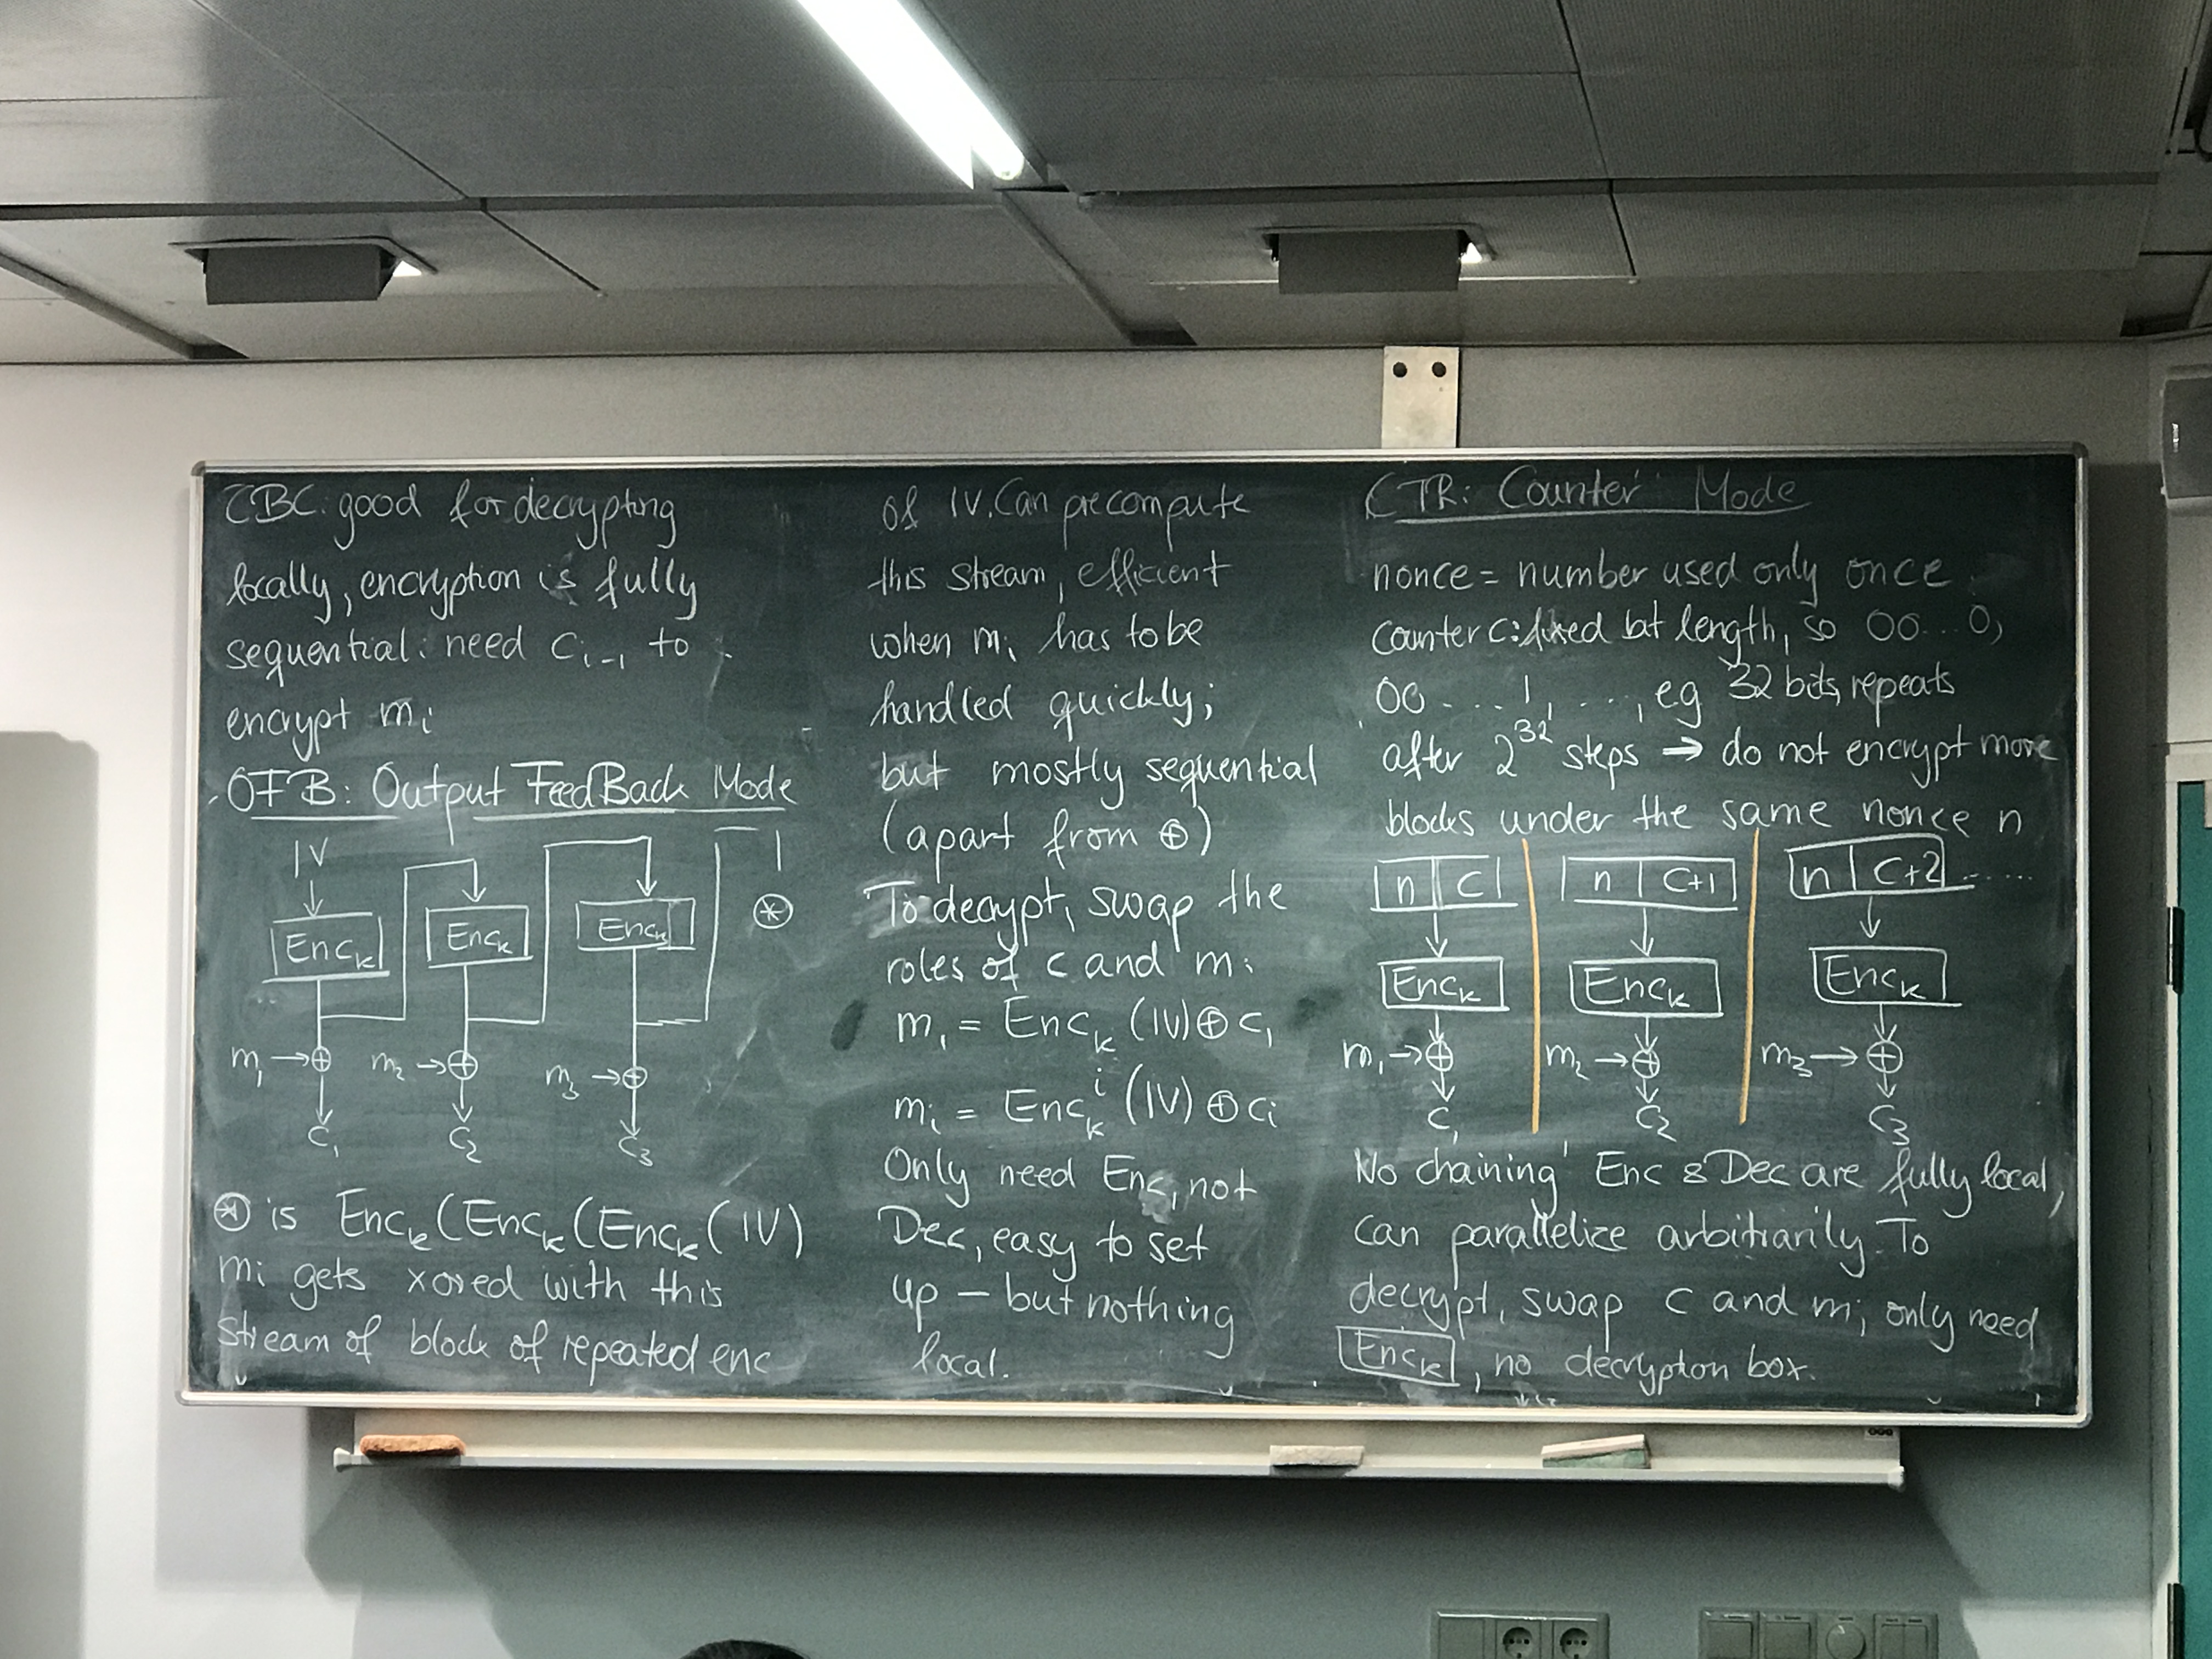 CBC: good for decrypting
locally, encryption is fully
sequential: need c_{i-1} to
encrypt m_i
OFB: Output FeedBack Mode
IV
Enc_k Enc_k Enc_k ⊛
m_1 → ⊕ m_2 → ⊕ m_3 → ⊕
c_1 c_2 c_3
⊛ is Enc_k(Enc_k(Enc_k(IV)
m_i gets xored with this
stream of block of repeated enc
of IV. Can precompute
this stream, efficient
when m_i has to be
handled quickly;
but mostly sequential
(apart from ⊕)
To decrypt, swap the
roles of c and m:
m_1 = Enc_k (IV) ⊕ c_1
m_i = Enc_k^i (IV) ⊕ c_i
Only need Enc, not
Dec, easy to set
up – but nothing
local.
CTR: Counter Mode
nonce = number used only once
counter c: fixed bit length, so 00...0,
00...1, ..., eg 32 bits, repeats
after 2^32 steps → do not encrypt more
blocks under the same nonce n
n | c n | c+1 n | c+2 .....
Enc_k Enc_k Enc_k
m_1 → ⊕ m_2 → ⊕ m_3 → ⊕
c_1 c_2 c_3
No chaining Enc & Dec are fully local,
can parallelize arbitrarily. To
decrypt, swap c and m; only need
Enc_k, no decryption box.